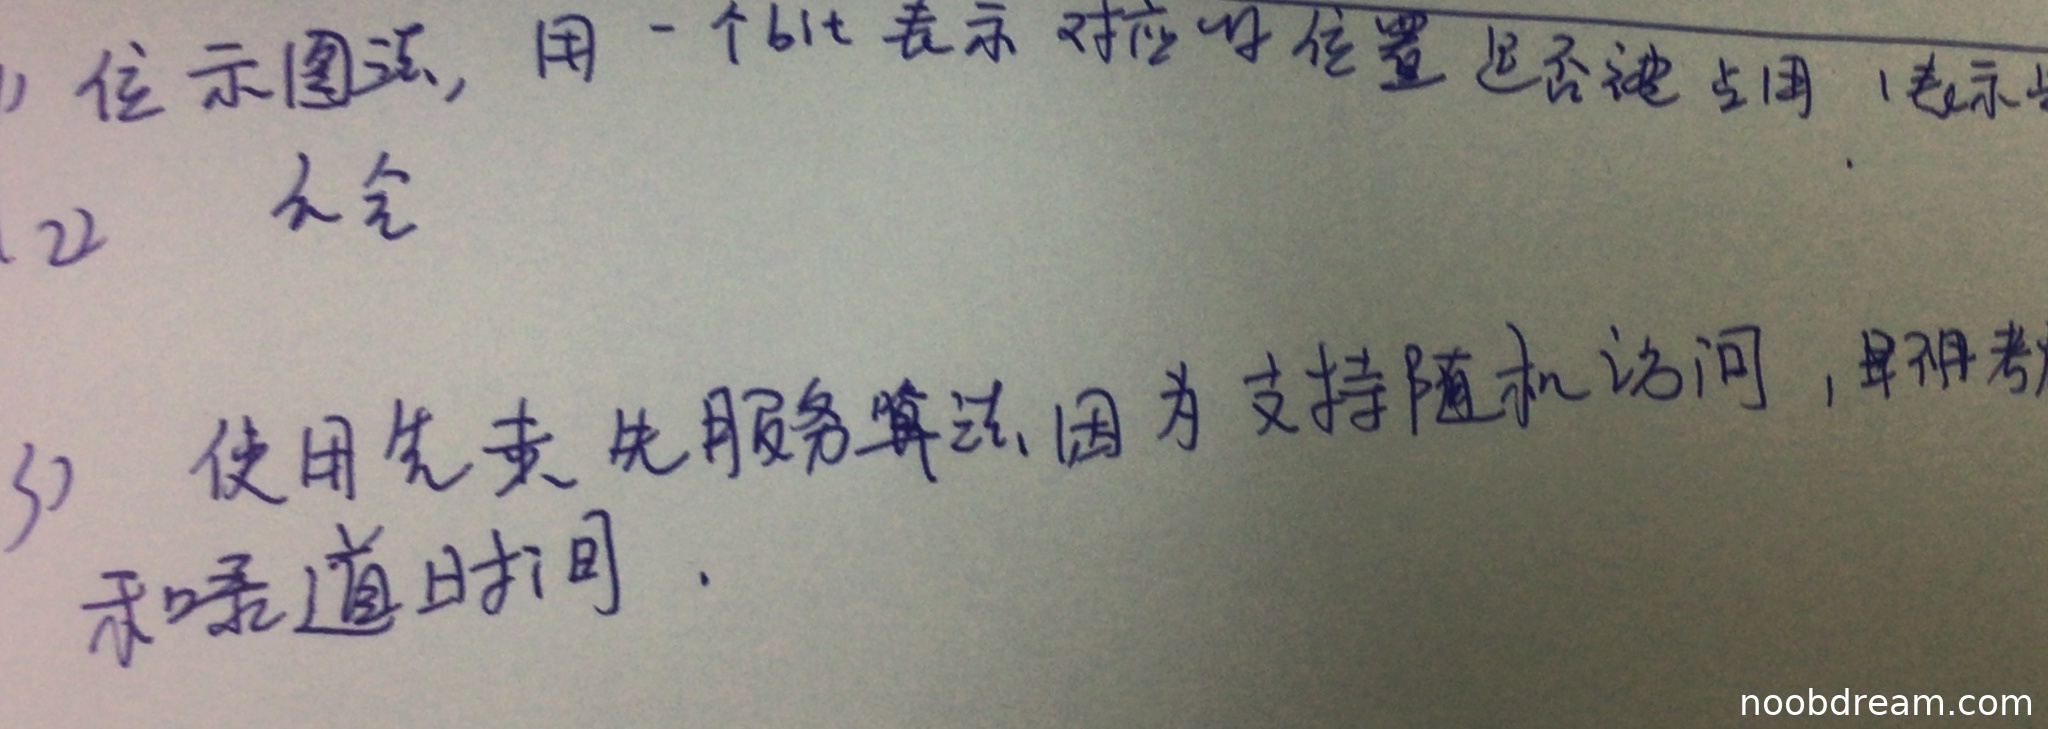 1) 位示图法, 用一个bit 表示 对应的位置是否被占用 1表示占
(2) 不会
3) 使用先来先服务算法,因为支持随机访问,且不用考
和寻道时间.
noobdream.com